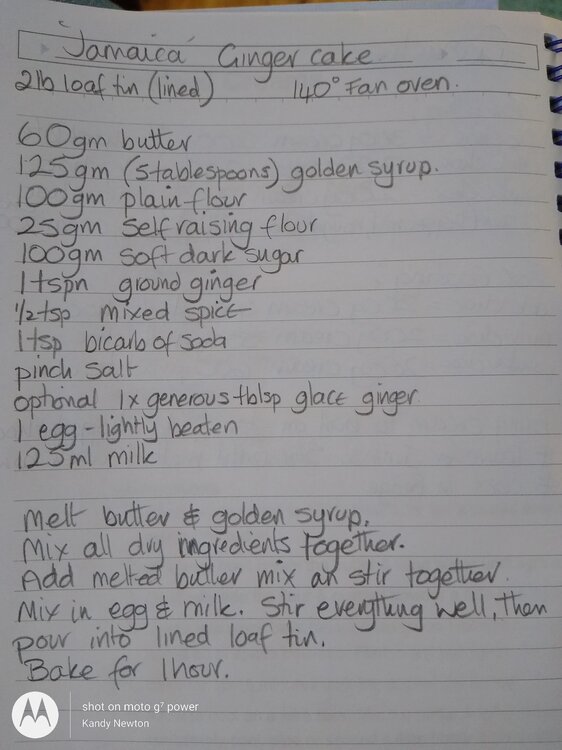 "Jamaica" Ginger cake
2lb loaf tin (lined) 140° Fan oven.
60gm butter
125gm (5tablespoons) golden syrup.
100gm plain flour
25gm Self raising flour
100gm soft dark sugar
1 tspn ground ginger
1/2 tsp mixed spice
1 tsp bicarb of soda
pinch salt
optional 1x generous tblsp glace ginger
1 egg - lightly beaten
125ml milk
Melt butter & golden syrup.
Mix all dry ingredients together.
Add melted butter mix an stir together.
Mix in egg & milk. Stir everything well, then
pour into lined loaf tin.
Bake for 1 hour.
shot on moto g⁷ power
Kandy Newton